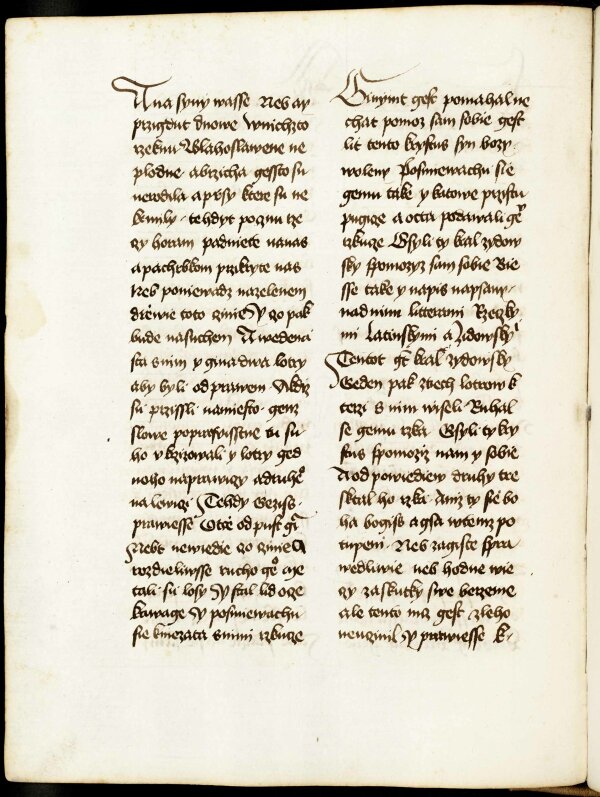 A na syny wasse Neb ay
przigdut dnowe wnichzto
rzeknu Blahoslawene ne
plodne a brzicha gessto su
nerodila a prsy ktere su ne
krmily tehdyt pocznu rze
czy horam padniete nanas
a pachrbkom przikryte nas
Neb poniewadz nazelenem
drziewie toto czinie Y czo pak
bude nasuchem A wedena
sta snim y gina dwa lotry
aby byli odprawem A kdyz
su przissli namiesto genz
slowe popravisstne tu su
ho vkrzizowali y lotry ged
noho naprawiczy a druheho
na lewiczi Tehdy Geziss
prawiesse Otcze odpust gim
Nebt newiedie czo czinie A
rozdieliwsse rucho geho me
tali su losy Y stal lid ocze
kawage Y posmiewachu
sie kniezata snimi rzkucze
Ginymt gest pomahal ne
chat pomoz sam sobie gest
lit tento krystus syn bozy
woleny Posmiewachu sie
gemu take y katowe przistu
pugicze a octa podawali gemu
rzkucze Gsyli ty kral zydow
sky spomozyz sam sobie Bie
sse take y napis napsany
nad nim litterami Rzeczky
mi Latinskymi a Zidowskymi
Tentot gest kral zydowsky
Geden pak ztiech lotrow k
terzi s nim wiseli Ruhal
se gemu rzka Gsyli ty kry
stus spomoziz nam y sobie
A od powiediew druhy tre
sktal ho rzka Aniz ty sie bo
ha bogiss a gsa wtemz po
tupeni Neb zagiste spra
wedliwie neb hodne wie
czy zaskutky swe berzeme
ale tento nicz gest zleho
neuczinil Y prawiesse k